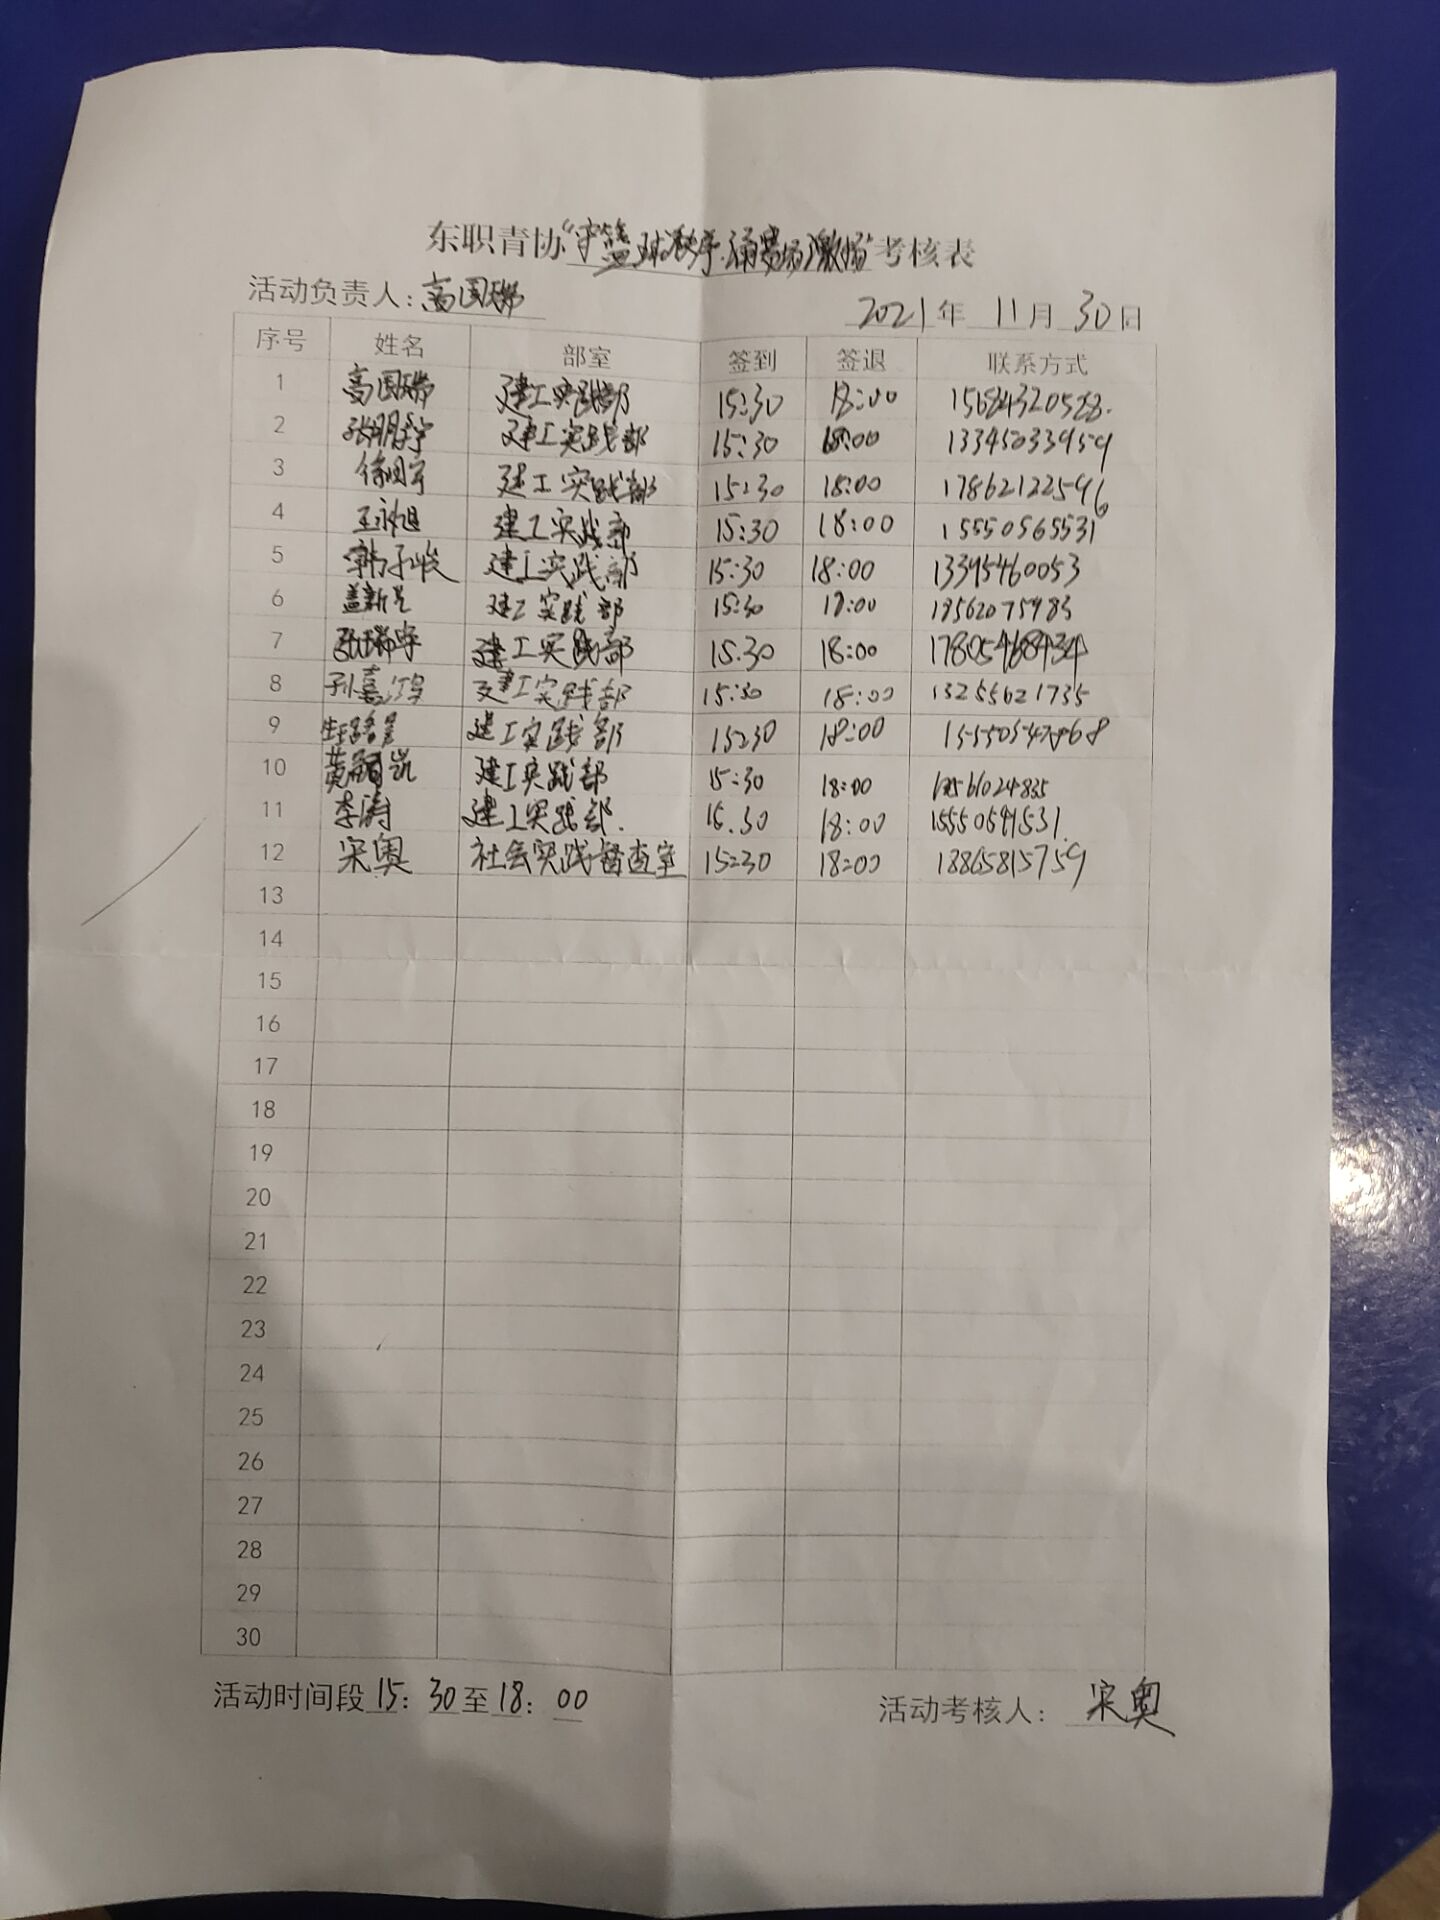 东职青协“守篮球秩序·涌赛场激情”考核表
活动负责人:高国瑞
2021年 11月 30日
序号 姓名 部室 签到 签退 联系方式
1 高国瑞 建工实践部 15:30 18:00 15684320528
2 建工实践部 15:30 18:00 13345033959
3 建工实践部 15:30 18:00 17862122596
4 王永旭 建工实践部 15:30 18:00 15550565531
5 韩子峻 建工实践部 15:30 18:00 13395460053
6 建工实践部 15:30 18:00
7 张瑞宇 建工实践部 15:30 18:00
8 孙嘉鸿 建工实践部 15:30 18:00 13255621735
9 建工实践部 15:30 18:00
10 建工实践部 15:30 18:00
11 李涛 建工实践部. 15:30 18:00
12 宋奥 社会实践督查室 15:30 18:00 18865815759
13
14
15
16
17
18
19
20
21
22
23
24
25
26
27
28
29
30
活动时间段 15: 30至18: 00
活动考核人: 宋奥